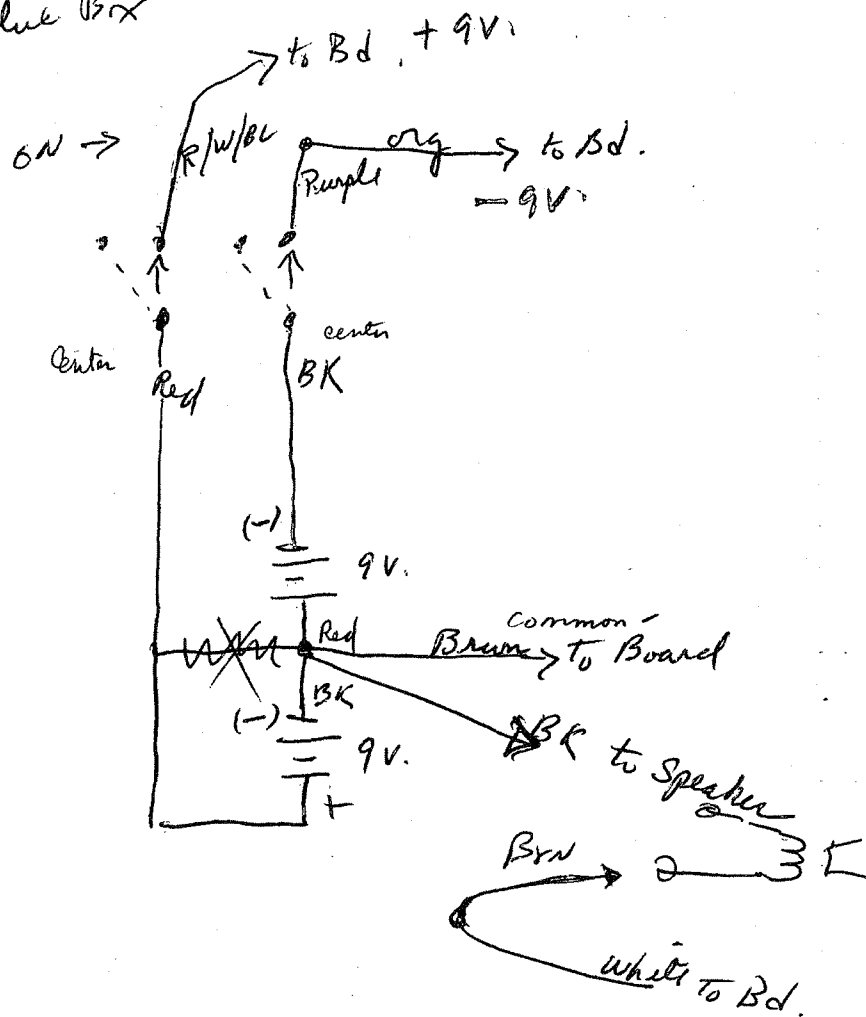 Blue Box
to Bd. + 9V.
ON →
R/W/BL
org
to Bd.
Purple
- 9V.
Center
center
Red
BK
(-)
9V.
common -
Red
Brwn
to Board
BK
(-)
9V.
+
BK to Speaker
BrN
White to Bd.